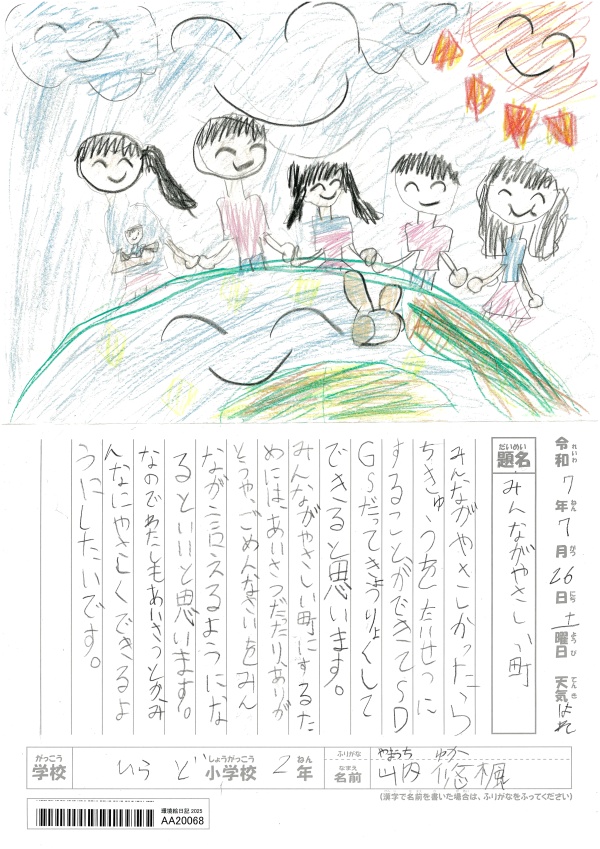 令和7年7月26日土曜日 天気はれ
れいわ ねん がつ にち ようび てんき
題名 みんながやさしい町
だいめい
みんながやさしかったら
ちきゅうをたいせつに
することができてSD
GSだってきょうりょくして
できると思います。
みんながやさしい町にするた
めには、あいさつだったり、ありが
とうや、ごめんなさいをみん
なが言えるようにな
るといいと思います。
なのでわたしもあいさつとかみ
んなにやさしくできるよ
うにしたいです。
がっこう しょうがっこう ねん ふりがな やまうち ゆうか
学校 いらど小学校 2年 なまえ 名前 山内 悠楓
(漢字で名前を書いた場合は、ふりがなをふってください)
環境絵日記 2025
AA20068